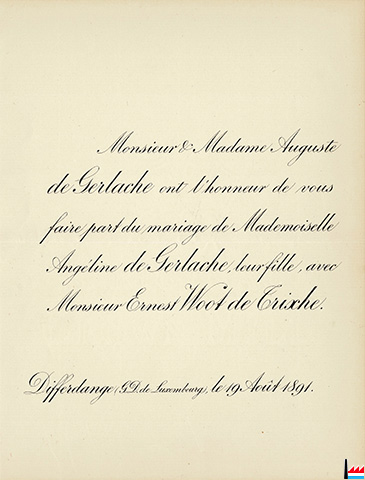 Monsieur & Madame Auguste
de Gerlache ont l'honneur de vous
faire part du mariage de Mademoiselle
Angéline de Gerlache, leur fille, avec
Monsieur Ernest Woot de Trixhe.
Differdange (G.D. de Luxembourg), le 19 Août 1891.